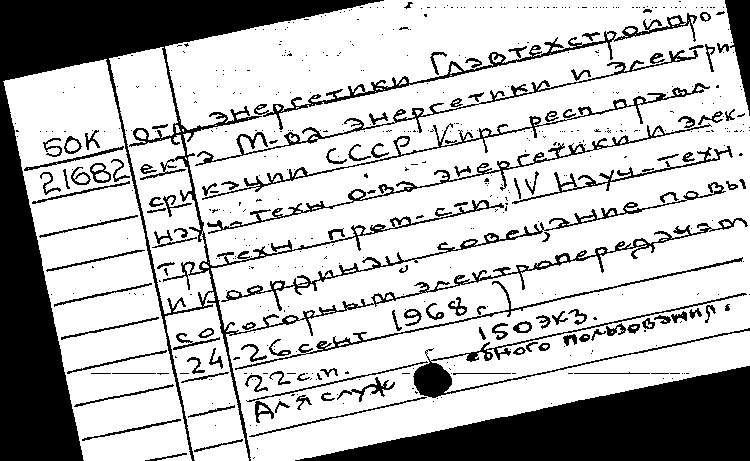 отд энергетики Главтехстройпро-
50К екта М-ва энергетики и электри-
21682 фикации СССР Кирг респ правл.
науч-техн о-ва энергетики и элек-
тротехн. пром-сти. IV Науч-техн.
и координац. совещание по вы
сокогорным электропередачам
24-26 сент 1968 г.)
22 ст. 150 экз.
Для служебного пользования.